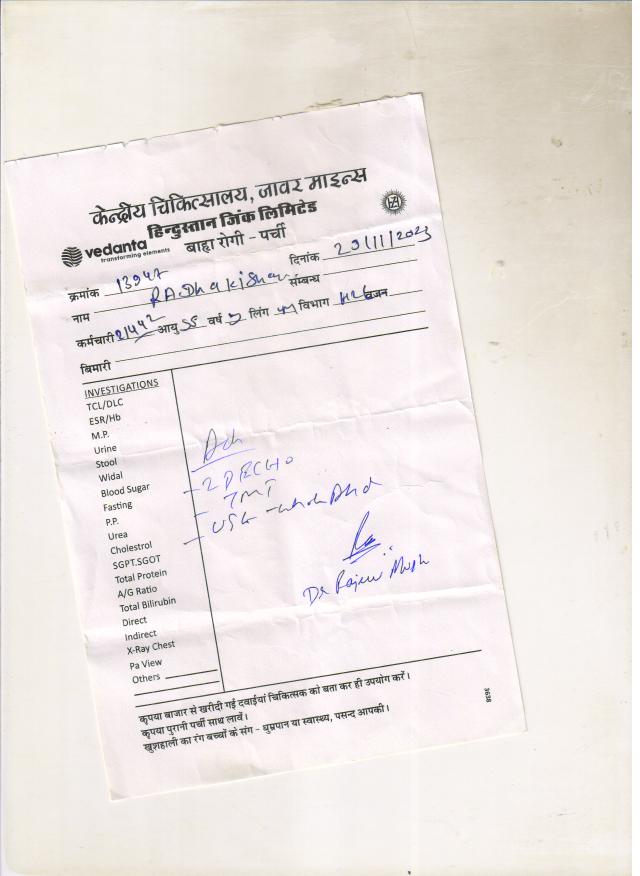 केन्द्रीय चिकित्सालय, जावर माइन्स
हिन्दुस्तान जिंक लिमिटेड
vedanta
transforming elements
बाह्य रोगी - पर्ची
क्रमांक 13947 दिनांक 29/11/2023
नाम RADhakishan सम्बन्ध
कर्मचारी 21442 आयु 55 वर्ष लिंग विभाग वजन
बिमारी
INVESTIGATIONS
TCL/DLC
ESR/Hb
M.P.
Urine
Stool
Widal
Blood Sugar
Fasting
P.P.
Urea
Cholestrol
SGPT.SGOT
Total Protein
A/G Ratio
Total Bilirubin
Direct
Indirect
X-Ray Chest
Pa View
Others
Adv
- 2D ECHO
- TMT
- USG - whole Abd
Dr Rajeev
कृपया बाजार से खरीदी गई दवाईयां चिकित्सक को बता कर ही उपयोग करें।
कृपया पुरानी पर्ची साथ लावें।
खुशहाली का रंग बच्चों के संग - धुम्रपान या स्वास्थ्य, पसन्द आपकी।
3638